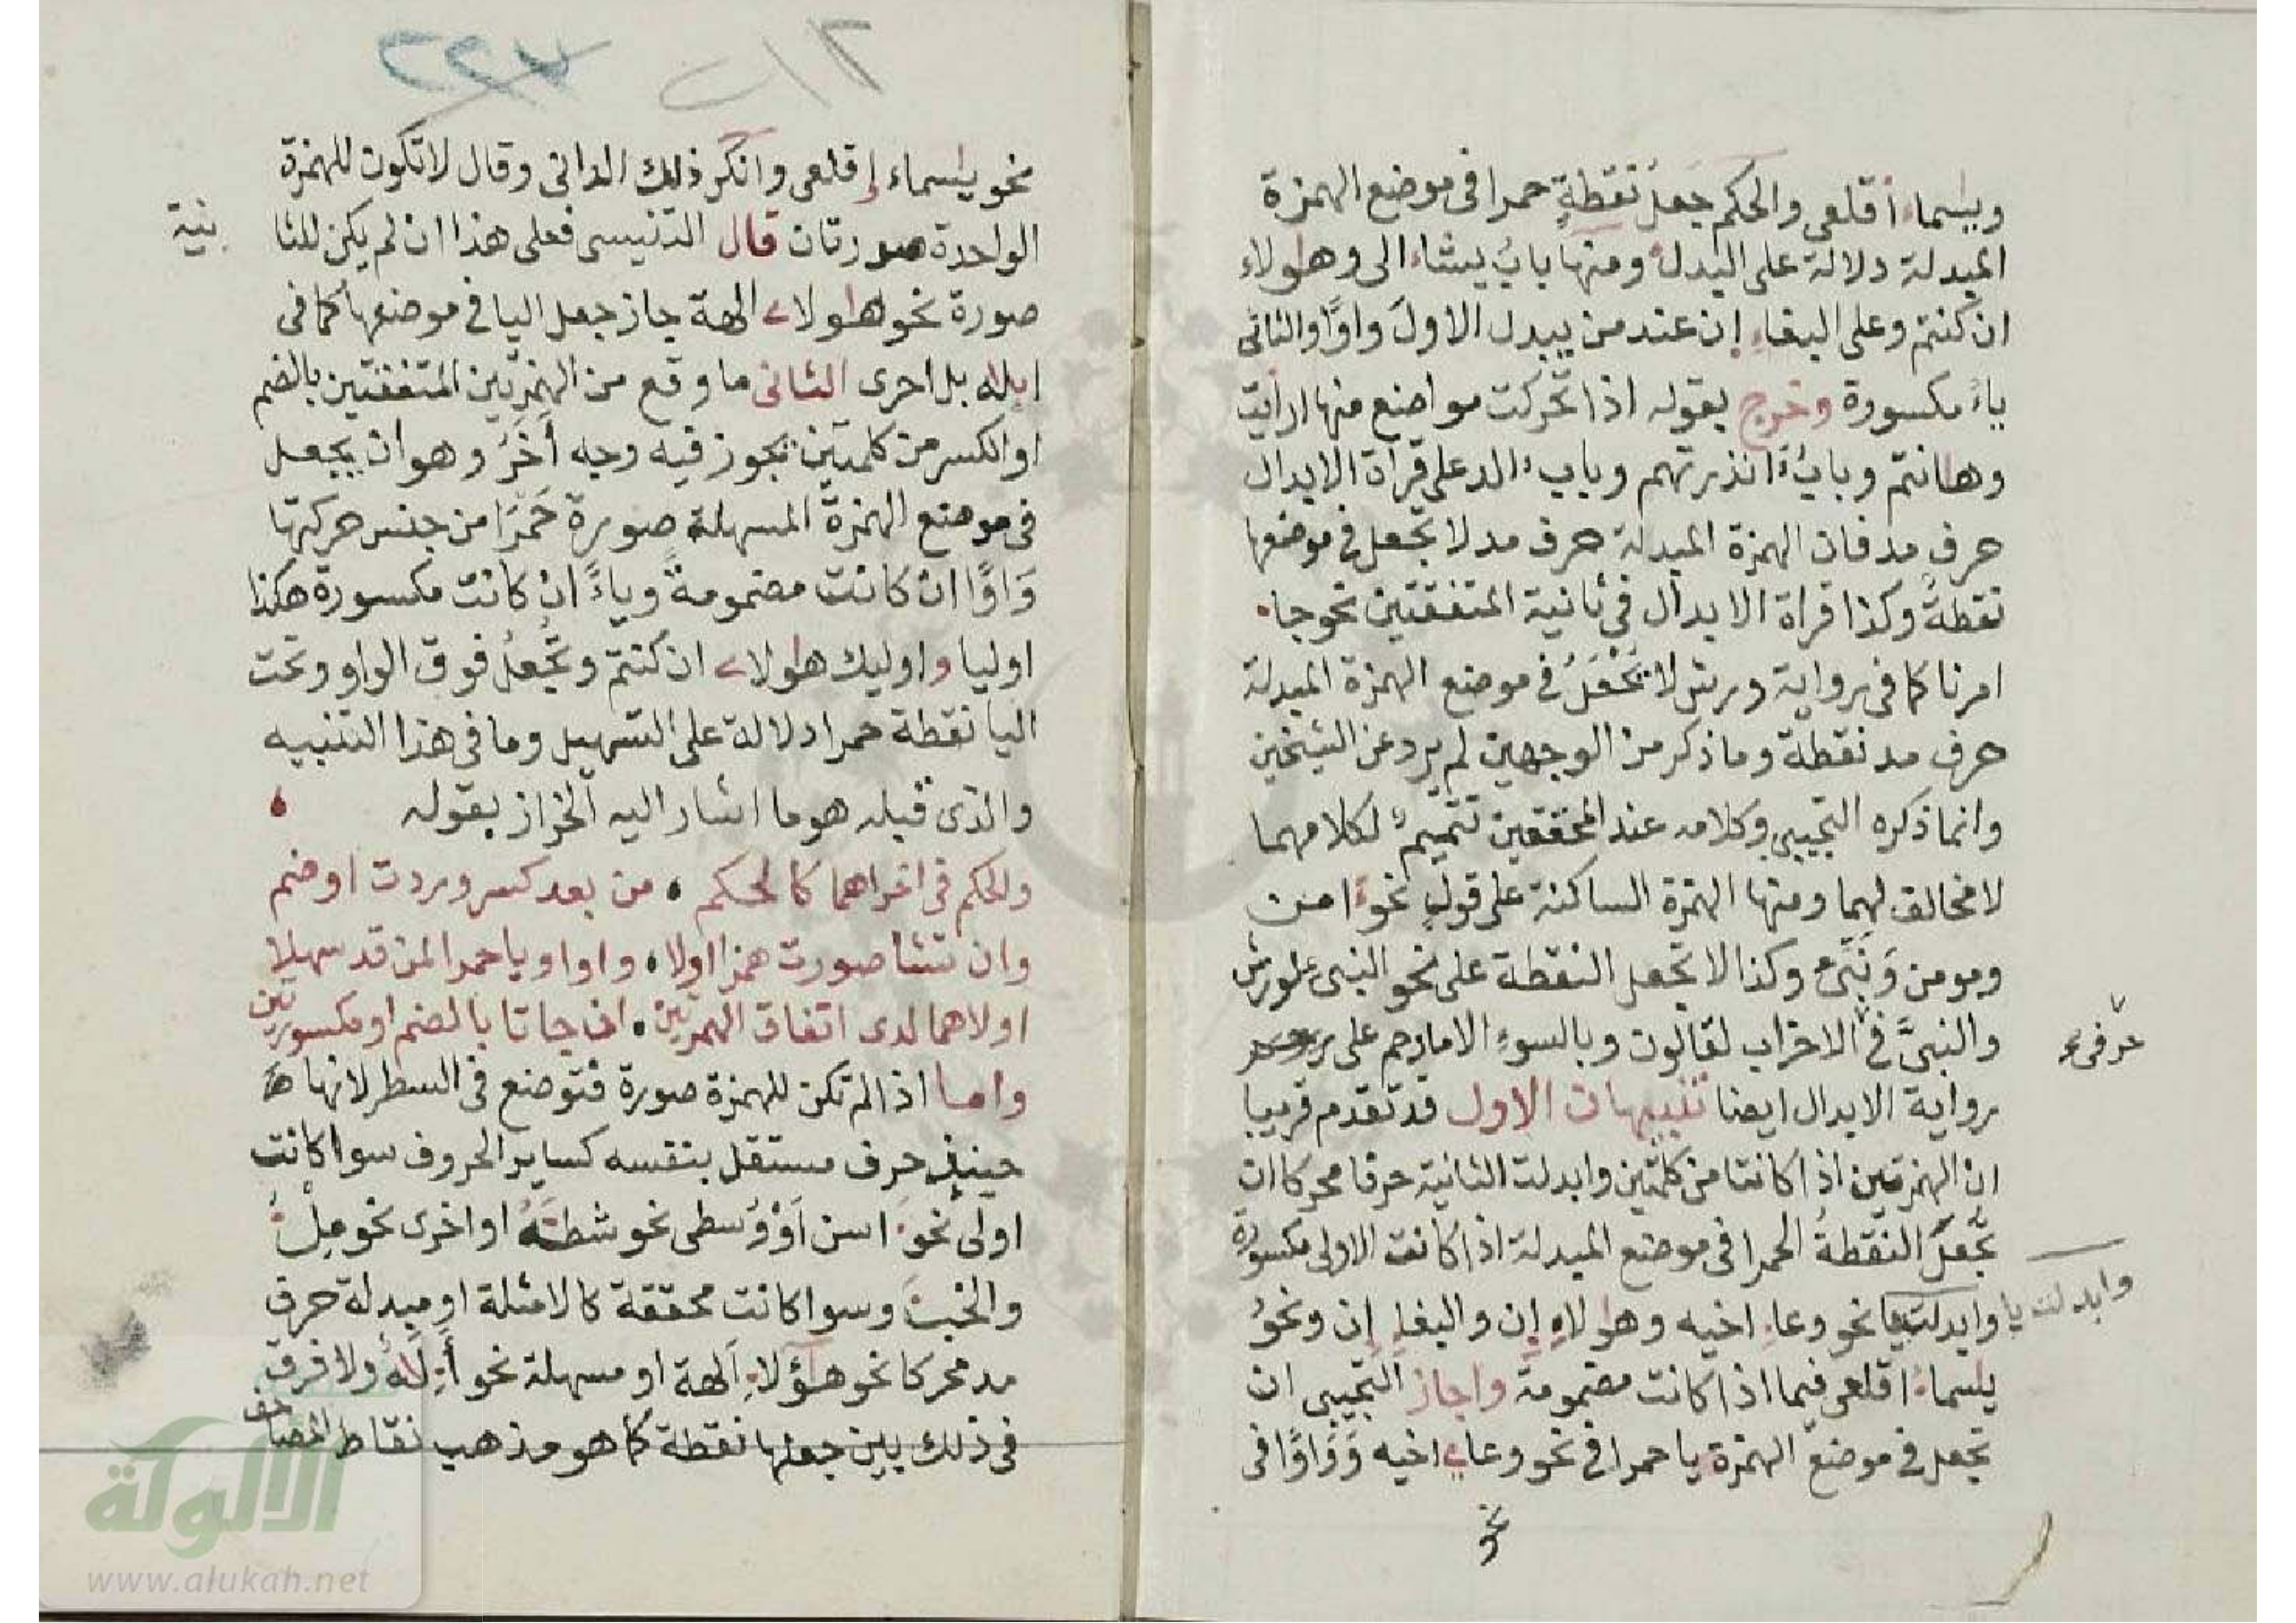 ويسماء أقلعى والحكم جعل نقطة حمرا فى موضع الهمزة
المبدلة دلالة على البدل ومنها باب يشاء الى وهاولاء
ان كنتم وعلى البغاء إن عند من يبدل الاول واوا والثانى
ياء مكسورة وخرج بقوله اذا تحركت مواضع منها ارايت
وهانتم وباب ءانذرتهم وباب ءالد على قراة الابدال
حرف مد فان الهمزة المبدلة حرف مد لا تجعل فى موضعها
نقطة وكذا قراة الابدال فى ثانية المتفقتين نحو جاء
امرنا كما فى رواية ورش لا تجعل فى موضع الهمزة المبدلة
حرف مد نقطة وما ذكر من الوجهين لم يرد عن الشيخين
وانما ذكره التجيبى وكلامه عند المحققين تتميم لكلامهما
لا مخالف لهما ومنها الهمزة الساكنة على قول نحو ءامن
ومومن ونبئ وكذا لا تجعل النقطة على نحو النسى لورش
والنبى فى الاحزاب لقالون وبالسوء الا مارحم على
رواية الابدال ايضا تنبيهات الاول قد تقدم قريبا
ان الهمزتين اذا كانتا من كلمتين وابدلت الثانية حرفا محركا ان
تجعل النقطة الحمرا فى موضع المبدلة اذا كانت الاولى مكسورة
وابدلت يا نحو وعاء اخيه وهاولاء إن والبغا إن ونحو
وابدلت يا
يسماء اقلعى فيما اذا كانت مضمومة واجاز التجيبى ان
تجعل فى موضع الهمزة يا حمرا فى نحو وعاء اخيه وواوا فى
نحو
٢١٢ ٢٢٧
نحو يسماء إقلعى وانكر ذلك الدانى وقال لا تكون للهمزة
الواحدة صورتان قال التنيسى فعلى هذا ان لم يكن للثا
نية
صورة نحو هاولاء الهة جاز جعل اليا فى موضعها كما فى
ايله بل احرى الثانى ما وقع من الهمزتين المتفقتين بالضم
او الكسر من كلمتين يجوز فيه وجه أخر وهو ان يجعل
فى موضع الهمزة المسهلة صورة حمرا من جنس حركتها
واوا ان كانت مضمومة وياء ان كانت مكسورة هكذا
اوليا واوليك هاولاء ان كنتم وتجعل فوق الواو وتحت
اليا نقطة حمرا دلالة على التسهيل وما فى هذا التنبيه
والذى قبله هو ما اشار اليه الخراز بقوله
والحكم فى اخراهما كالحكم من بعد كسر وردت او ضم
وان تشا صورت همزا اولا واوا ويا حمرا لمن قد سهلا
اولاهما لدى اتفاق الهمزتين ان جاتا بالضم او مكسورتين
واما اذا لم تكن للهمزة صورة فتوضع فى السطر لانها
حينئذ حرف مستقل بنفسه كساير الحروف سوا كانت
اولى نحو ءاسن أو وسطى نحو شطئه او اخرى نحو ملء
والخبء وسوا كانت محققة كالامثلة او مبدلة حرف
مد محركا نحو هؤلاء الهة او مسهلة نحو أءله ولا فرق
فى ذلك بين جعلها نقطة كما هو مذهب نقاط المصاحف
الألوكة
www.alukah.net